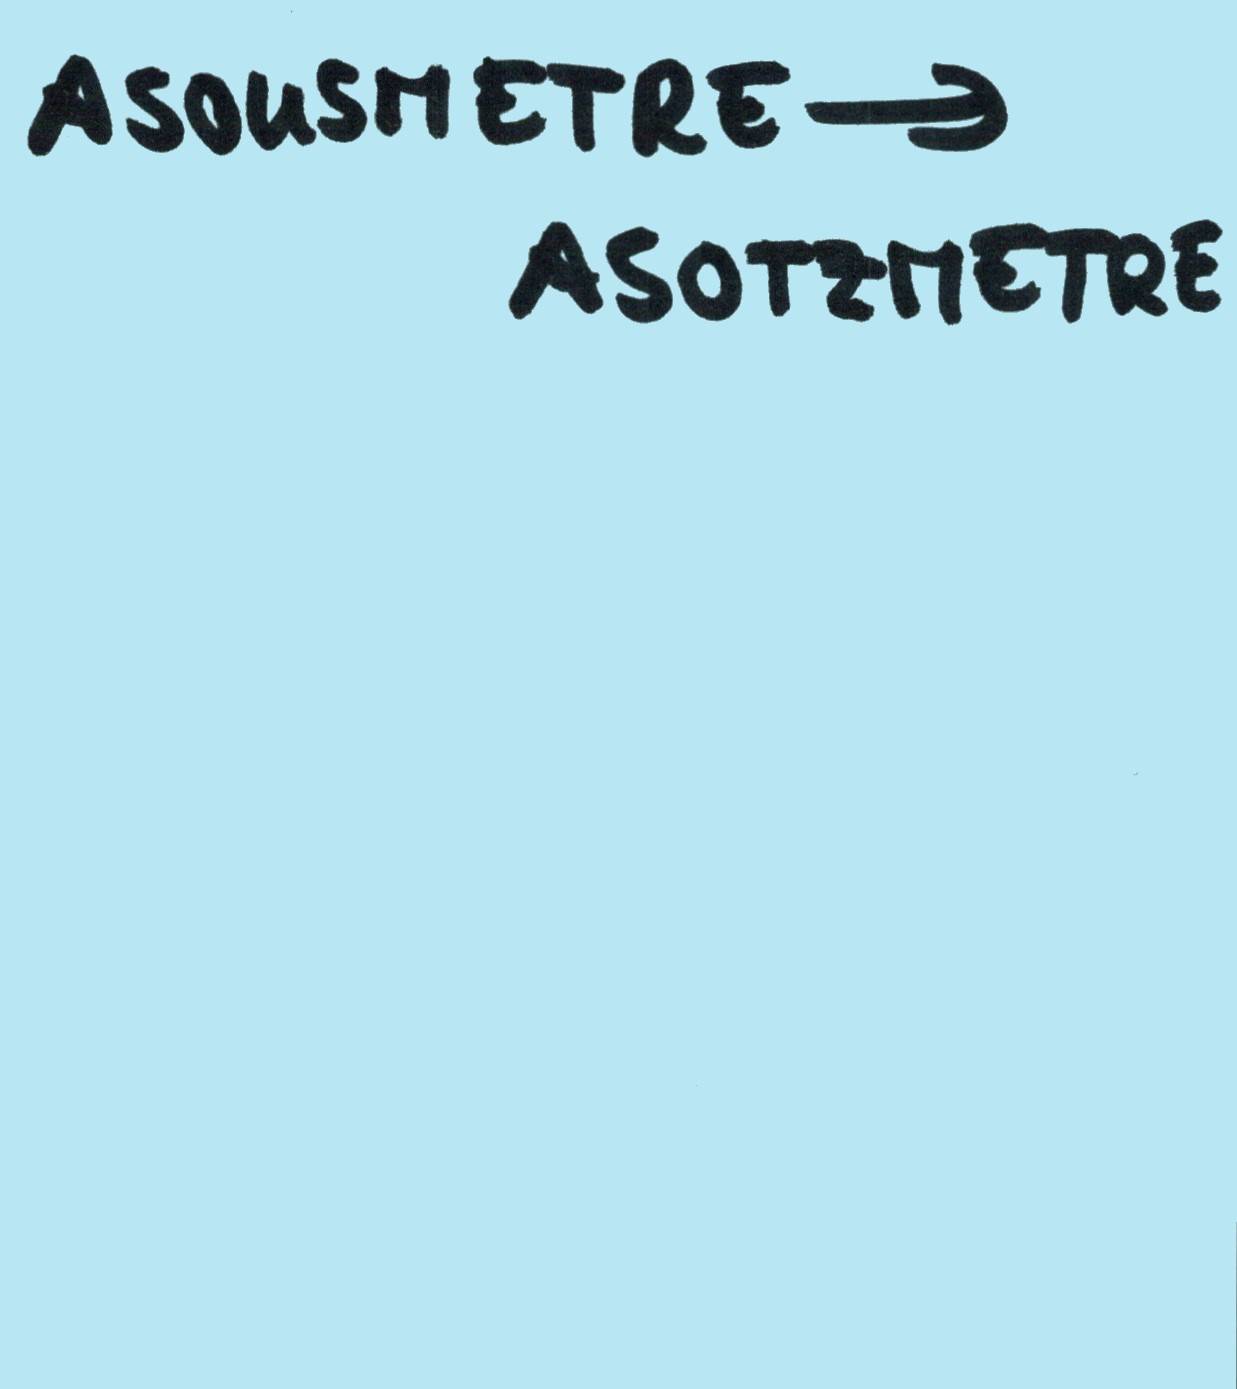 ASOUSMETRE →
ASOTZMETRE